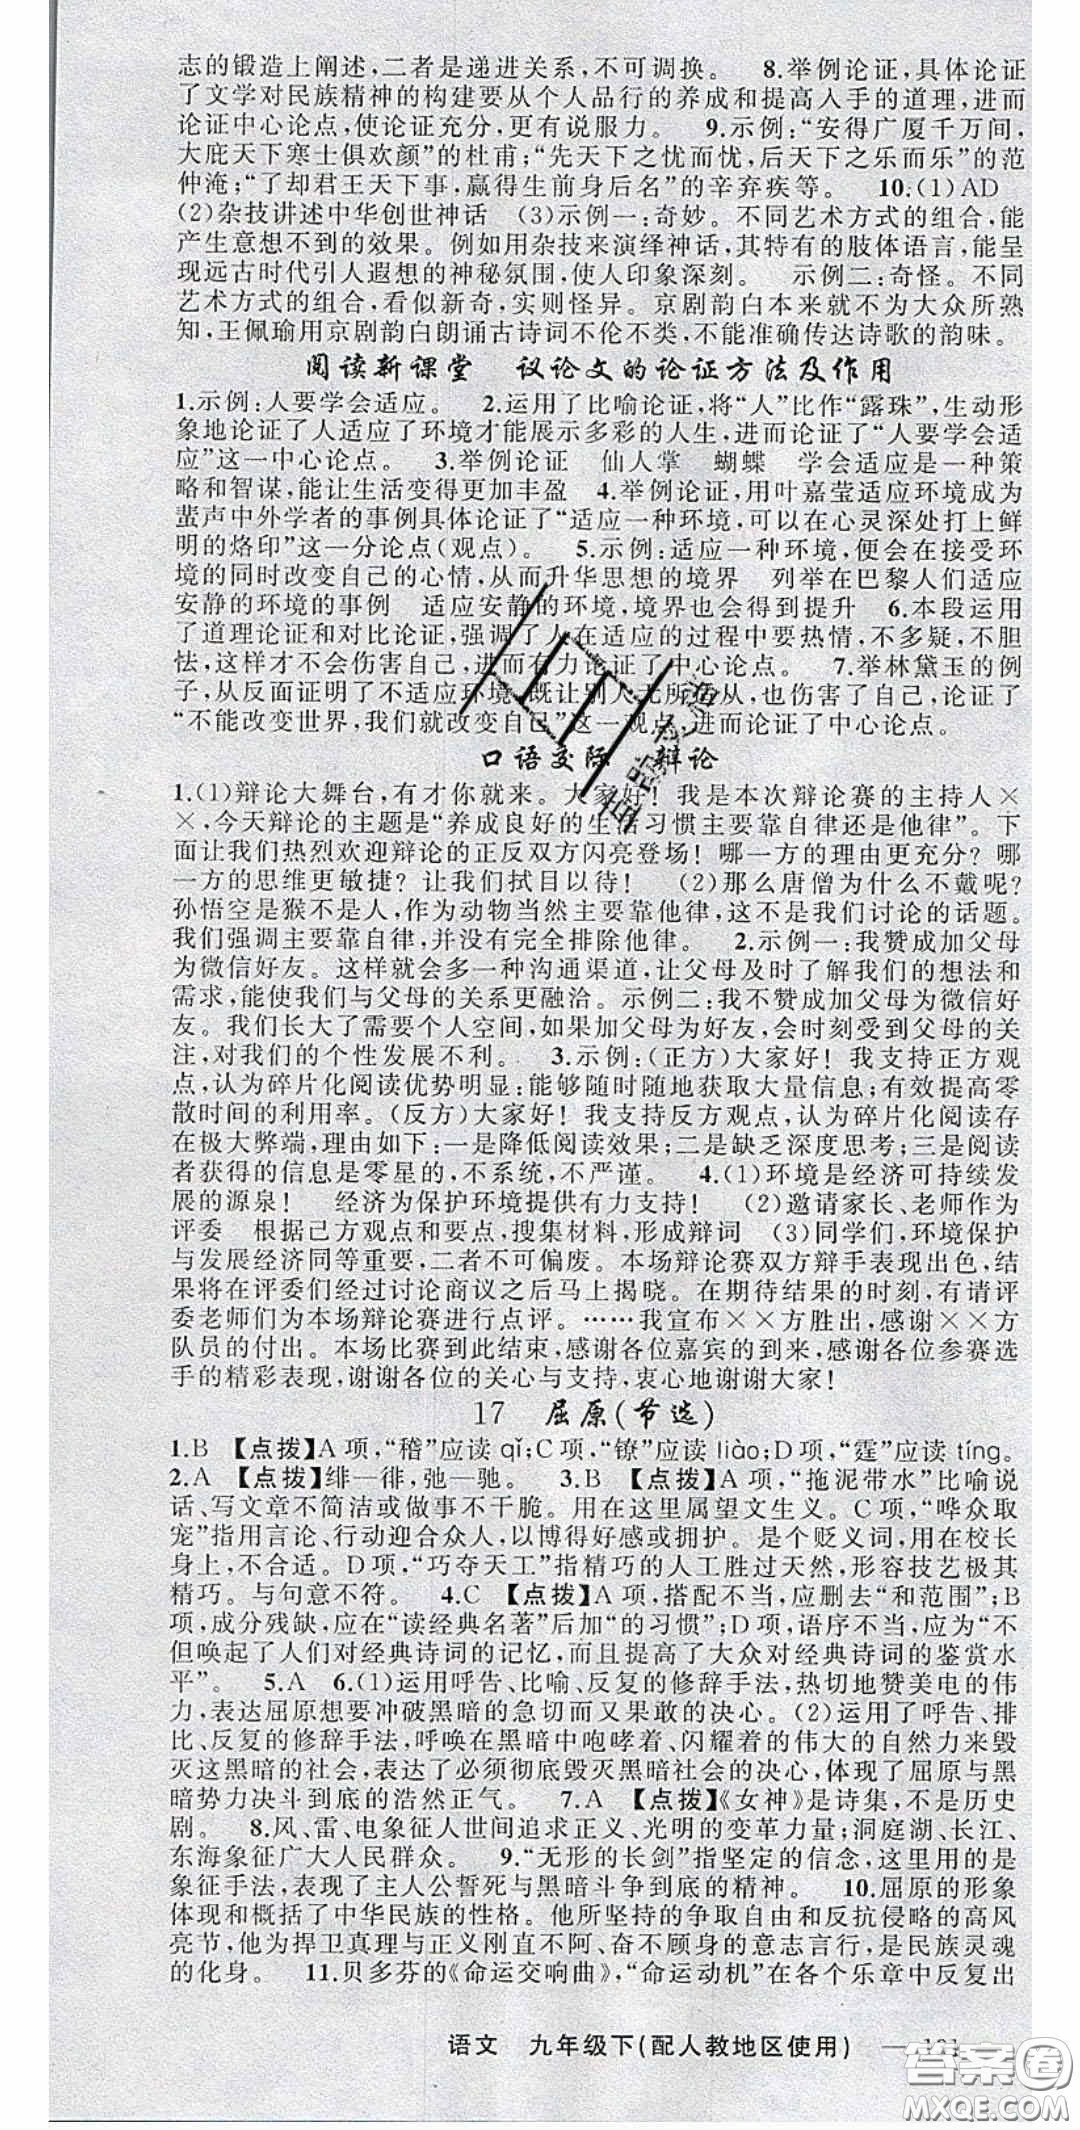 志的锻造上阐述,二者是递进关系,不可调换。 8.举例论证,具体论证
了文学对民族精神的构建要从个人品行的养成和提高入手的道理,进而
论证中心论点,使论证充分,更有说服力。 9.示例:“安得广厦千万间,
大庇天下寒士俱欢颜”的杜甫;“先天下之忧而忧,后天下之乐而乐”的范
仲淹;“了却君王天下事,赢得生前身后名”的辛弃疾等。 10.(1)AD
(2)杂技讲述中华创世神话 (3)示例一:奇妙。不同艺术方式的组合,能
产生意想不到的效果。例如用杂技来演绎神话,其特有的肢体语言,能呈
现远古时代引人遐想的神秘氛围,使人印象深刻。 示例二:奇怪。不同
艺术方式的组合,看似新奇,实则怪异。京剧韵白本来就不为大众所熟
知,王佩瑜用京剧韵白朗诵古诗词不伦不类,不能准确传达诗歌的韵味。
阅读新课堂 议论文的论证方法及作用
1.示例:人要学会适应。 2.运用了比喻论证,将“人”比作“露珠”,生动形
象地论证了人适应了环境才能展示多彩的人生,进而论证了“人要学会适
应”这一中心论点。 3.举例论证 仙人掌 蝴蝶 学会适应是一种策
略和智谋,能让生活变得更加丰盈 4.举例论证,用叶嘉莹适应环境成为
蜚声中外学者的事例具体论证了“适应一种环境,可以在心灵深处打上鲜
明的烙印”这一分论点(观点)。 5.示例:适应一种环境,便会在接受环
境的同时改变自己的心情,从而升华思想的境界 列举在巴黎人们适应
安静的环境的事例 适应安静的环境,境界也会得到提升 6.本段运用
了道理论证和对比论证,强调了人在适应的过程中要热情,不多疑,不胆
怯,这样才不会伤害自己,进而有力论证了中心论点。 7.举林黛玉的例
子,从反面证明了不适应环境,既让别人无所适从,也伤害了自己,论证了
“不能改变世界,我们就改变自己”这一观点,进而论证了中心论点。
口语交际 辩论
1.(1)辩论大舞台,有才你就来。大家好!我是本次辩论赛的主持人×
×,今天辩论的主题是“养成良好的生活习惯主要靠自律还是他律”。下
面让我们热烈欢迎辩论的正反双方闪亮登场!哪一方的理由更充分?哪
一方的思维更敏捷?让我们拭目以待! (2)那么唐僧为什么不戴呢?
孙悟空是猴不是人,作为动物当然主要靠他律,这不是我们讨论的话题。
我们强调主要靠自律,并没有完全排除他律。 2.示例一:我赞成加父母
为微信好友。这样就会多一种沟通渠道,让父母及时了解我们的想法和
需求,能使我们与父母的关系更融洽。示例二:我不赞成加父母为微信好
友。我们长大了需要个人空间,如果加父母为好友,会时刻受到父母的关
注,对我们的个性发展不利。 3.示例:(正方)大家好!我支持正方观
点,认为碎片化阅读优势明显:能够随时随地获取大量信息;有效提高零
散时间的利用率。(反方)大家好!我支持反方观点,认为碎片化阅读存
在极大弊端,理由如下:一是降低阅读效果;二是缺乏深度思考;三是阅读
者获得的信息是零星的,不系统,不严谨。 4.(1)环境是经济可持续发
展的源泉! 经济为保护环境提供有力支持! (2)邀请家长、老师作为
评委 根据己方观点和要点,搜集材料,形成辩词 (3)同学们,环境保护
与发展经济同等重要,二者不可偏废。本场辩论赛双方辩手表现出色,结
果将在评委们经过讨论商议之后马上揭晓。在期待结果的时刻,有请评
委老师们为本场辩论赛进行点评。……我宣布××方胜出,感谢××方
队员的付出。本场比赛到此结束,感谢各位嘉宾的到来,感谢各位参赛选
手的精彩表现,谢谢各位的关心与支持,衷心地谢谢大家!
17 屈原(节选)
1.B 【点拨】A项,“稽”应读qǐ;C项,“镣”应读liào;D项,“霆”应读tíng。
2.A 【点拨】绯—徘,弛—驰。 3.B 【点拨】A项,“拖泥带水”比喻说
话、写文章不简洁或做事不干脆。用在这里属望文生义。C项,“哗众取
宠”指用言论、行动迎合众人,以博得好感或拥护。是个贬义词,用在校长
身上,不合适。D项,“巧夺天工”指精巧的人工胜过天然,形容技艺极其
精巧。与句意不符。 4.C 【点拨】A项,搭配不当,应删去“和范围”;B
项,成分残缺,应在“读经典名著”后加“的习惯”;D项,语序不当,应为“不
但唤起了人们对经典诗词的记忆,而且提高了大众对经典诗词的鉴赏水
平”。 5.A 6.(1)运用呼告、比喻、反复的修辞手法,热切地赞美电的伟
力,表达屈原想要冲破黑暗的急切而又果敢的决心。(2)运用了呼告、排
比、反复的修辞手法,歌颂在黑暗中咆哮着、闪耀着的伟大的自然力来毁
灭黑暗的社会,表达了必须彻底毁灭黑暗社会的决心,体现了屈原与黑
暗势力决斗到底的浩然正气。 7.A 【点拨】《女神》是诗集,不是历史
剧。 8.风、雷、电象征人世间追求正义、光明的变革力量;洞庭湖、长江、
东海象征广大人民群众。 9.“无形的长剑”指坚定的信念,这里用的是
象征手法,表现了主人公誓死与黑暗斗争到底的精神。 10.屈原的形象
体现和概括了中华民族的性格。他所坚持的争取自由和反抗侵略的高风
亮节,他为捍卫真理与正义刚直不阿、奋不顾身的意志言行,是民族灵魂
的化身。 11.贝多芬的《命运交响曲》,“命运动机”在各个乐章中反复出
语文 九年级下(配人教地区使用)
答案圈
MXQE.COM